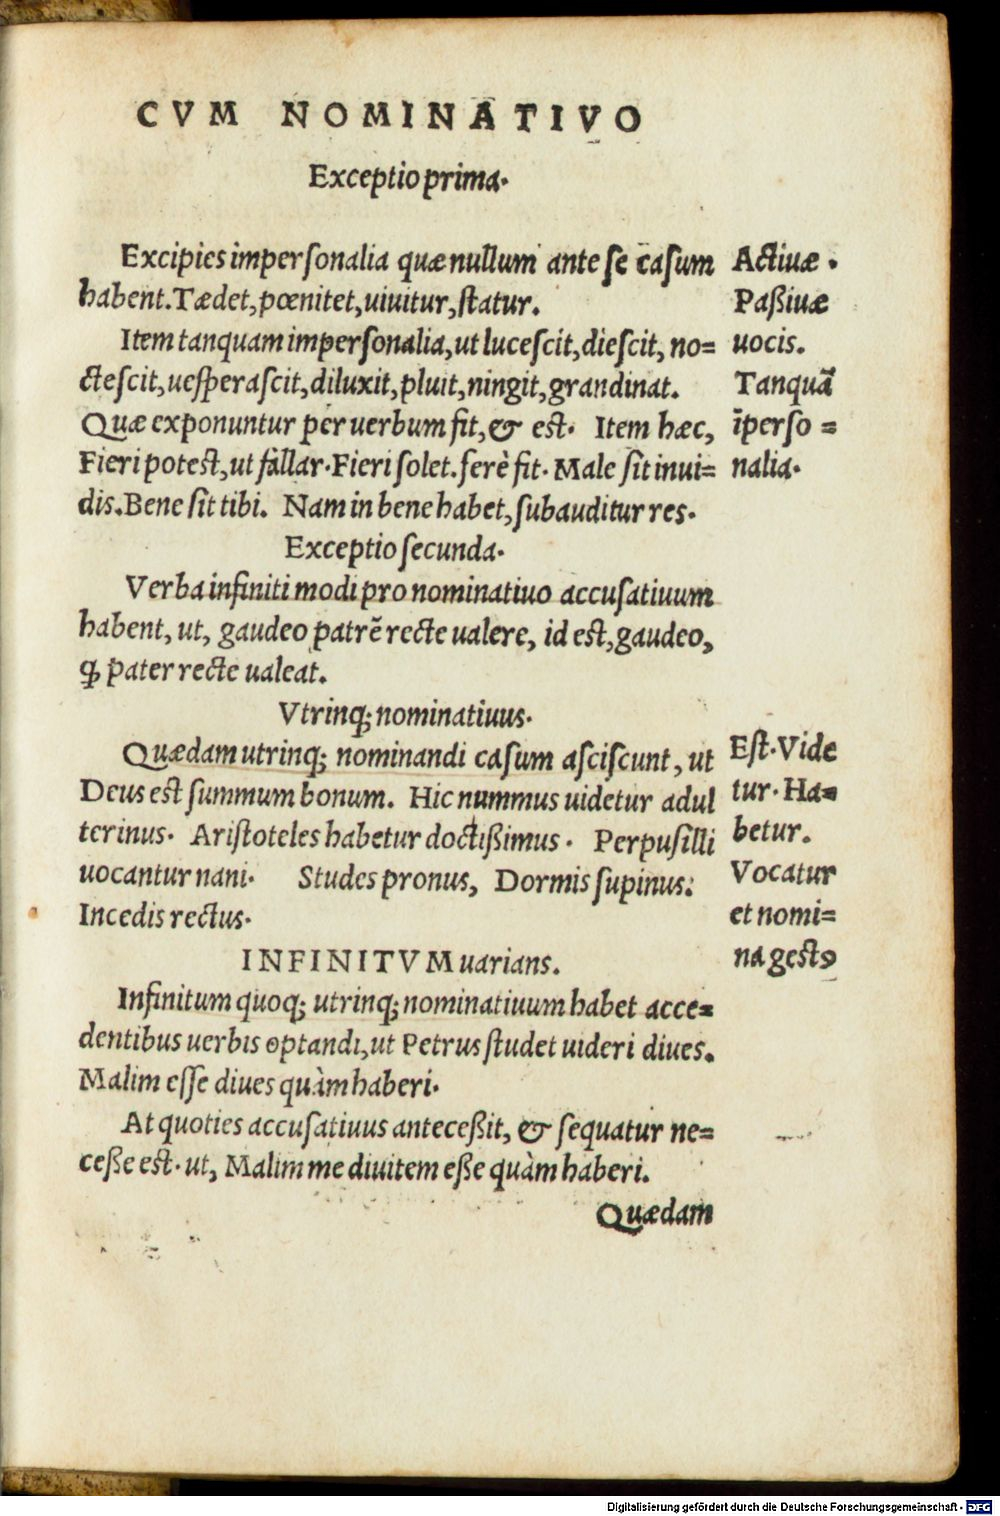 CVM NOMINATIVO
Exceptio prima.
Excipies impersonalia quæ nullum ante se casum
habent. Tædet, pœnitet, uiuitur, statur.
Item tanquam impersonalia, ut lucescit, diescit, no=
ctescit, uesperascit, diluxit, pluit, ningit, grandinat.
Quæ exponuntur per uerbum fit, & est. Item hæc,
Fieri potest, ut fallar. Fieri solet. ferè fit. Male sit inui=
dis. Bene sit tibi. Nam in bene habet, subauditur res.
Actiuæ.
Paßiuæ
uocis.
Tanquā
īperso=
nalia.
Exceptio secunda.
Verba infiniti modi pro nominatiuo accusatiuum
habent, ut, gaudeo patrē recte ualere, id est, gaudeo,
ꝙ pater recte ualeat.
Vtrinq; nominatiuus.
Quædam utrinq; nominandi casum asciscunt, ut
Deus est summum bonum. Hic nummus uidetur adul
terinus. Aristoteles habetur doctißimus. Perpusilli
uocantur nani. Studes pronus, Dormis supinus.
Incedis rectus.
Est. Vide
tur. Ha=
betur.
Vocatur
et nomi=
na gestꝰ
INFINITVM uarians.
Infinitum quoq; utrinq; nominatiuum habet acce=
dentibus uerbis optandi, ut Petrus studet uideri diues.
Malim esse diues quàm haberi.
At quoties accusatiuus anteceßit, & sequatur ne=
ceße est. ut, Malim me diuitem eße quàm haberi.
Quædam
Digitalisierung gefördert durch die Deutsche Forschungsgemeinschaft - DFG